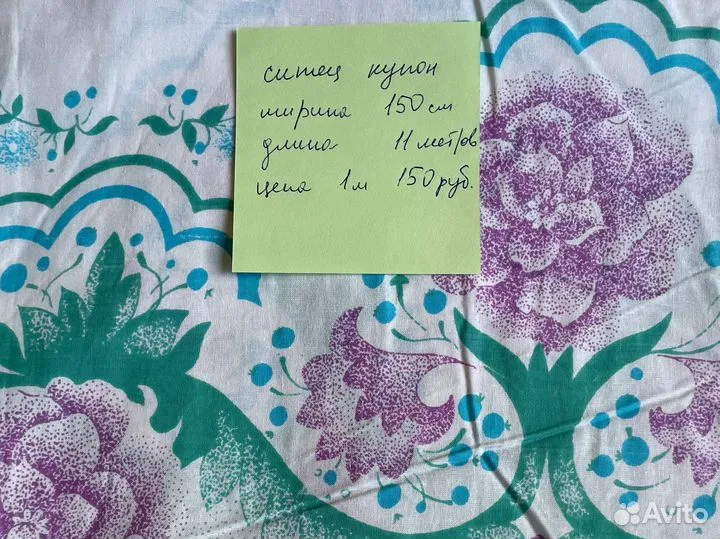 ситец купон
ширина 150 см
длина 11 метров
цена 1м 150 руб.
Avito